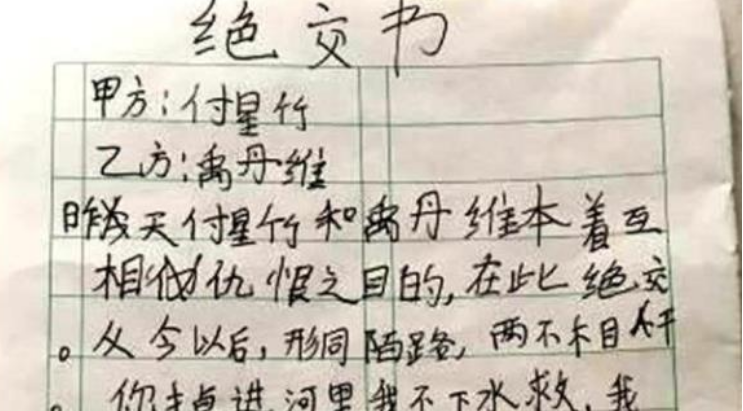 绝交书
甲方:付星竹
乙方:禹丹维
昨天付星竹和禹丹维本着互
相仇恨之目的,在此绝交
。从今以后,形同陌路,两不相干
。你掉进河里我不下水救,我